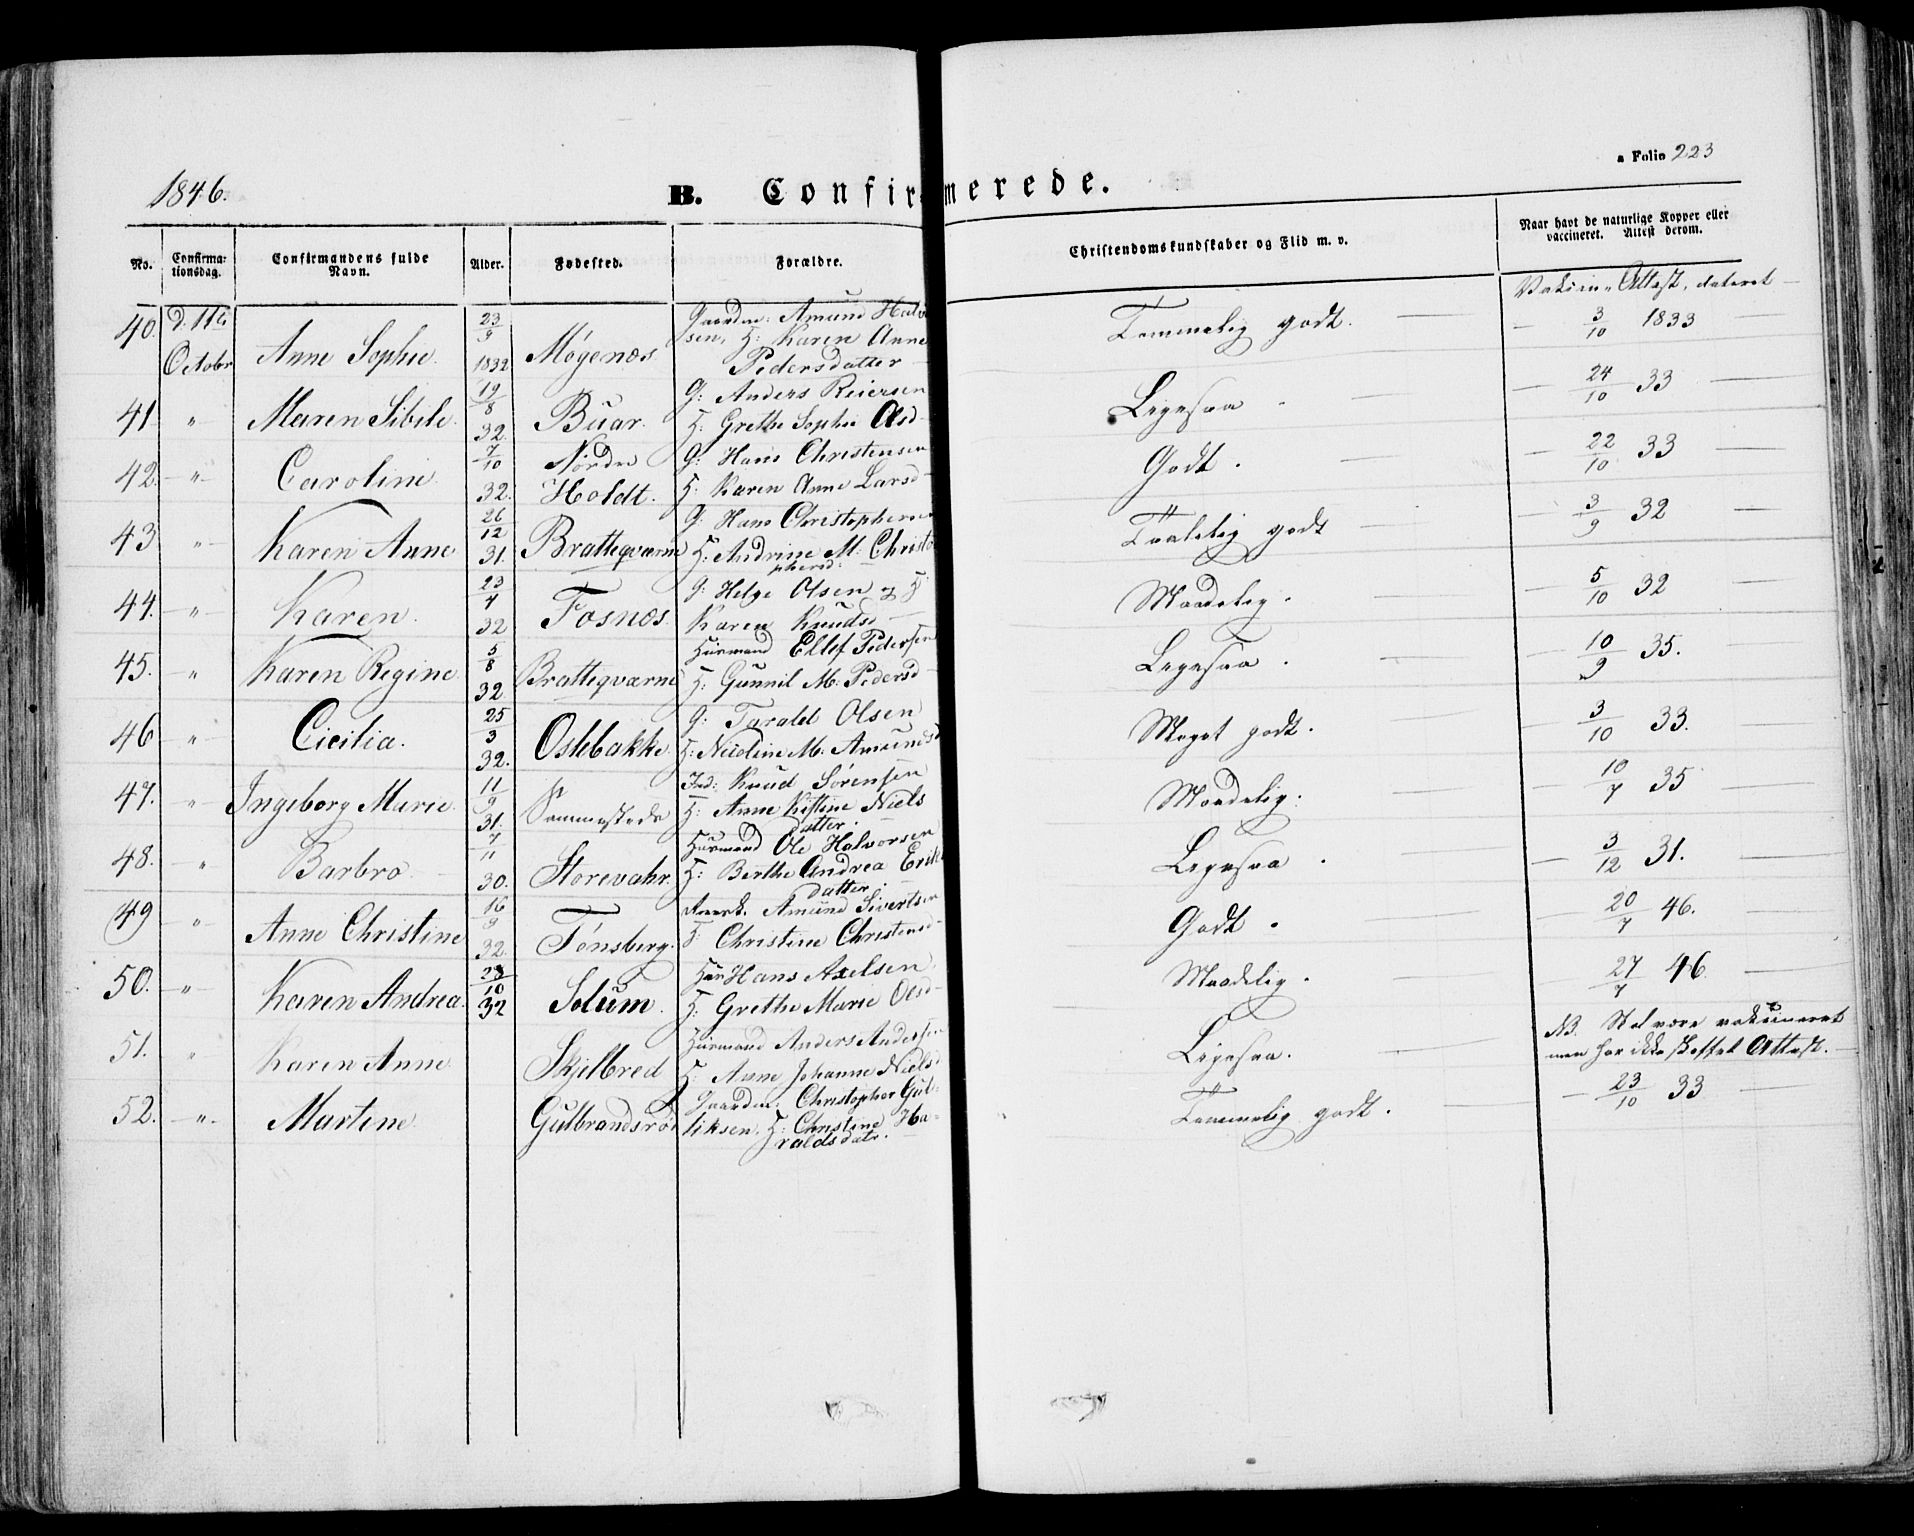 1846.
B. Confirmerede.
a Folio 223
No. Confirma-tionsdag. Confirmandens fulde Navn. Alder. Fødested. Forældre. Christendomskundskaber og Flid m. v. Naar havt de naturlige Kopper eller vaccineret. Attest derom.
Vaksin. Attest, dateret
40. d. 11te October Anne Sophie. 23/9 1832 Møgenæs Gaardm: Amund Halv
sen, H: Karen Anne
Pedersdatter
Temmelig godt. 3/10 1833
41 " Maren Sibile. 19/8 32. Buar. G: Anders Reiersen
H: Grethe Sophie Olsd
Ligesaa 24/10 33
42 " Caroline 7/10 32. Nordre Holdt. G: Hans Christensen
H: Karen Anne Larsd
Godt. 22/10 33
43 " Karen Anne 26/12 31. Bratteqværne G: Hans Christophersen
H: Andrine M: Christo
phersd:
Taalelig godt 3/9 32
44. " Karen. 23/4 32 Fosnæs G: Helge Olsen og H
Karen Knudsd
Maadelig. 5/10 32
45. " Karen Regine 5/8 32. Bratteqværne Huusmand Ellef Pedersen
H: Gunnil M: Pedersd
Ligesaa. 10/9 35.
46 " Cicilia. 25/3 32. Oslebakke. G: Tarald Olsen
H: Nicoline M. Amundsd
Meget godt. 3/10 33.
47. " Ingeborg Marie 11/9 31. Sammesteds Ind: Knud Sørensen
H: Anne Kistine Niels
datter.
Maadelig. 10/7 35
48. " Barbro 7/11 30. Storevahr. Huusmand Ole Halvorsen
H: Berthe Andrea Erik
datter.
Ligesaa. 3/12 31.
49 " Anne Christine 16/9 32. Tønsberg. Amund Sivertsen
H Christine Christensd
Godt. 20/7 46.
50. " Karen Andrea. 28/10 32 Solum. Huus Hans Axelsen
H: Grethe Marie Olsd
Maadelig. 27/7 46
51. " Karen Anne Skjelbred Huusmand Anders Andersen
H: Anne Johanne Nielsd
Ligesaa. NB. Skal være vaksineret
men har ikke skaffet Attest.
52. " Martine Gulbrandsrød Gaardm: Christopher Gul-
liksen. H: Christine Ha-
raldsdatr.
Temmelig godt. 23/10 33